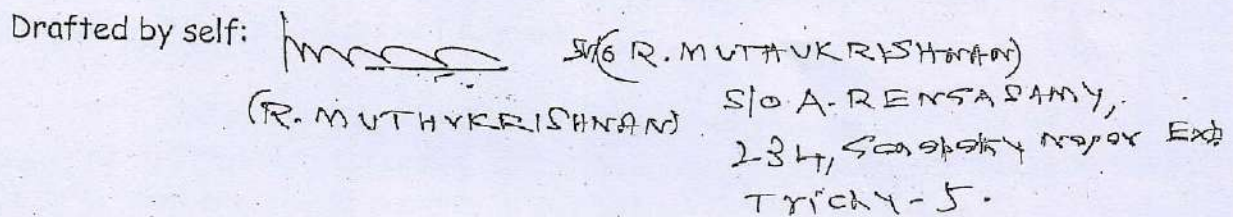 Drafted by self: (R. MUTHUKRISHNAN)
(R. MUTHUKRISHNAN) S/o A. RENGASAMY,
234, Ext
Trichy-5.